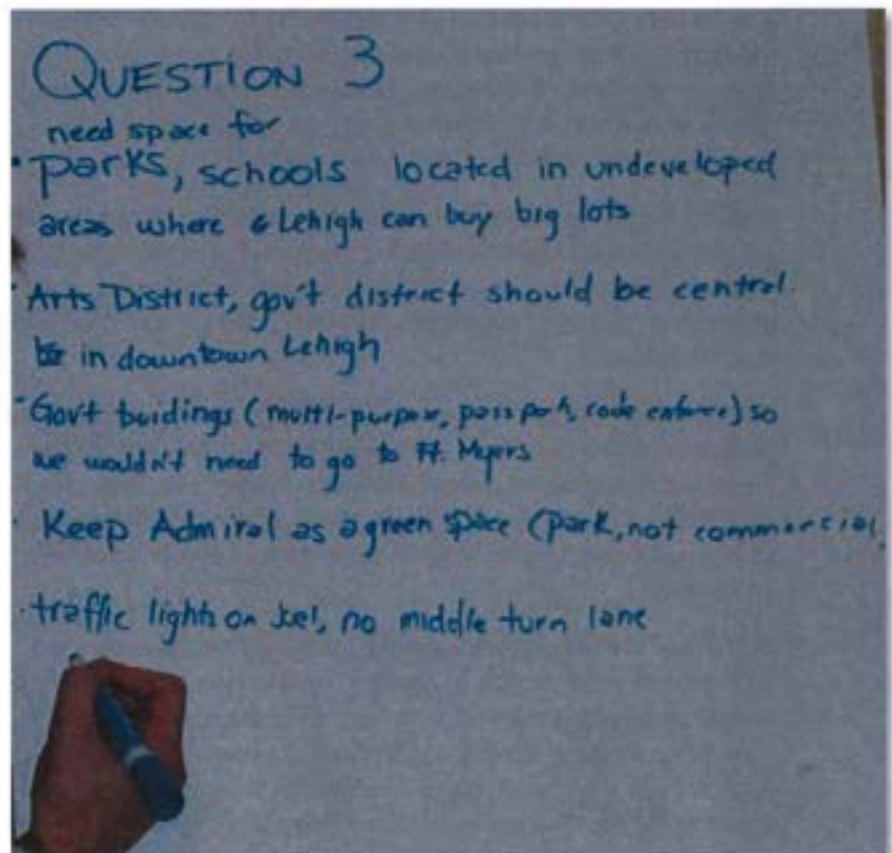 QUESTION 3
need space for
• parks, schools located in undeveloped
areas where Lehigh can buy big lots
• Arts District, gov't district should be central.
in downtown Lehigh
• Gov't buidings (multi-purpose, passport, code enforce) so
we wouldn't need to go to Ft. Myers
• Keep Admiral as a green space (park, not commercial
• traffic lights on Joel, no middle turn lane